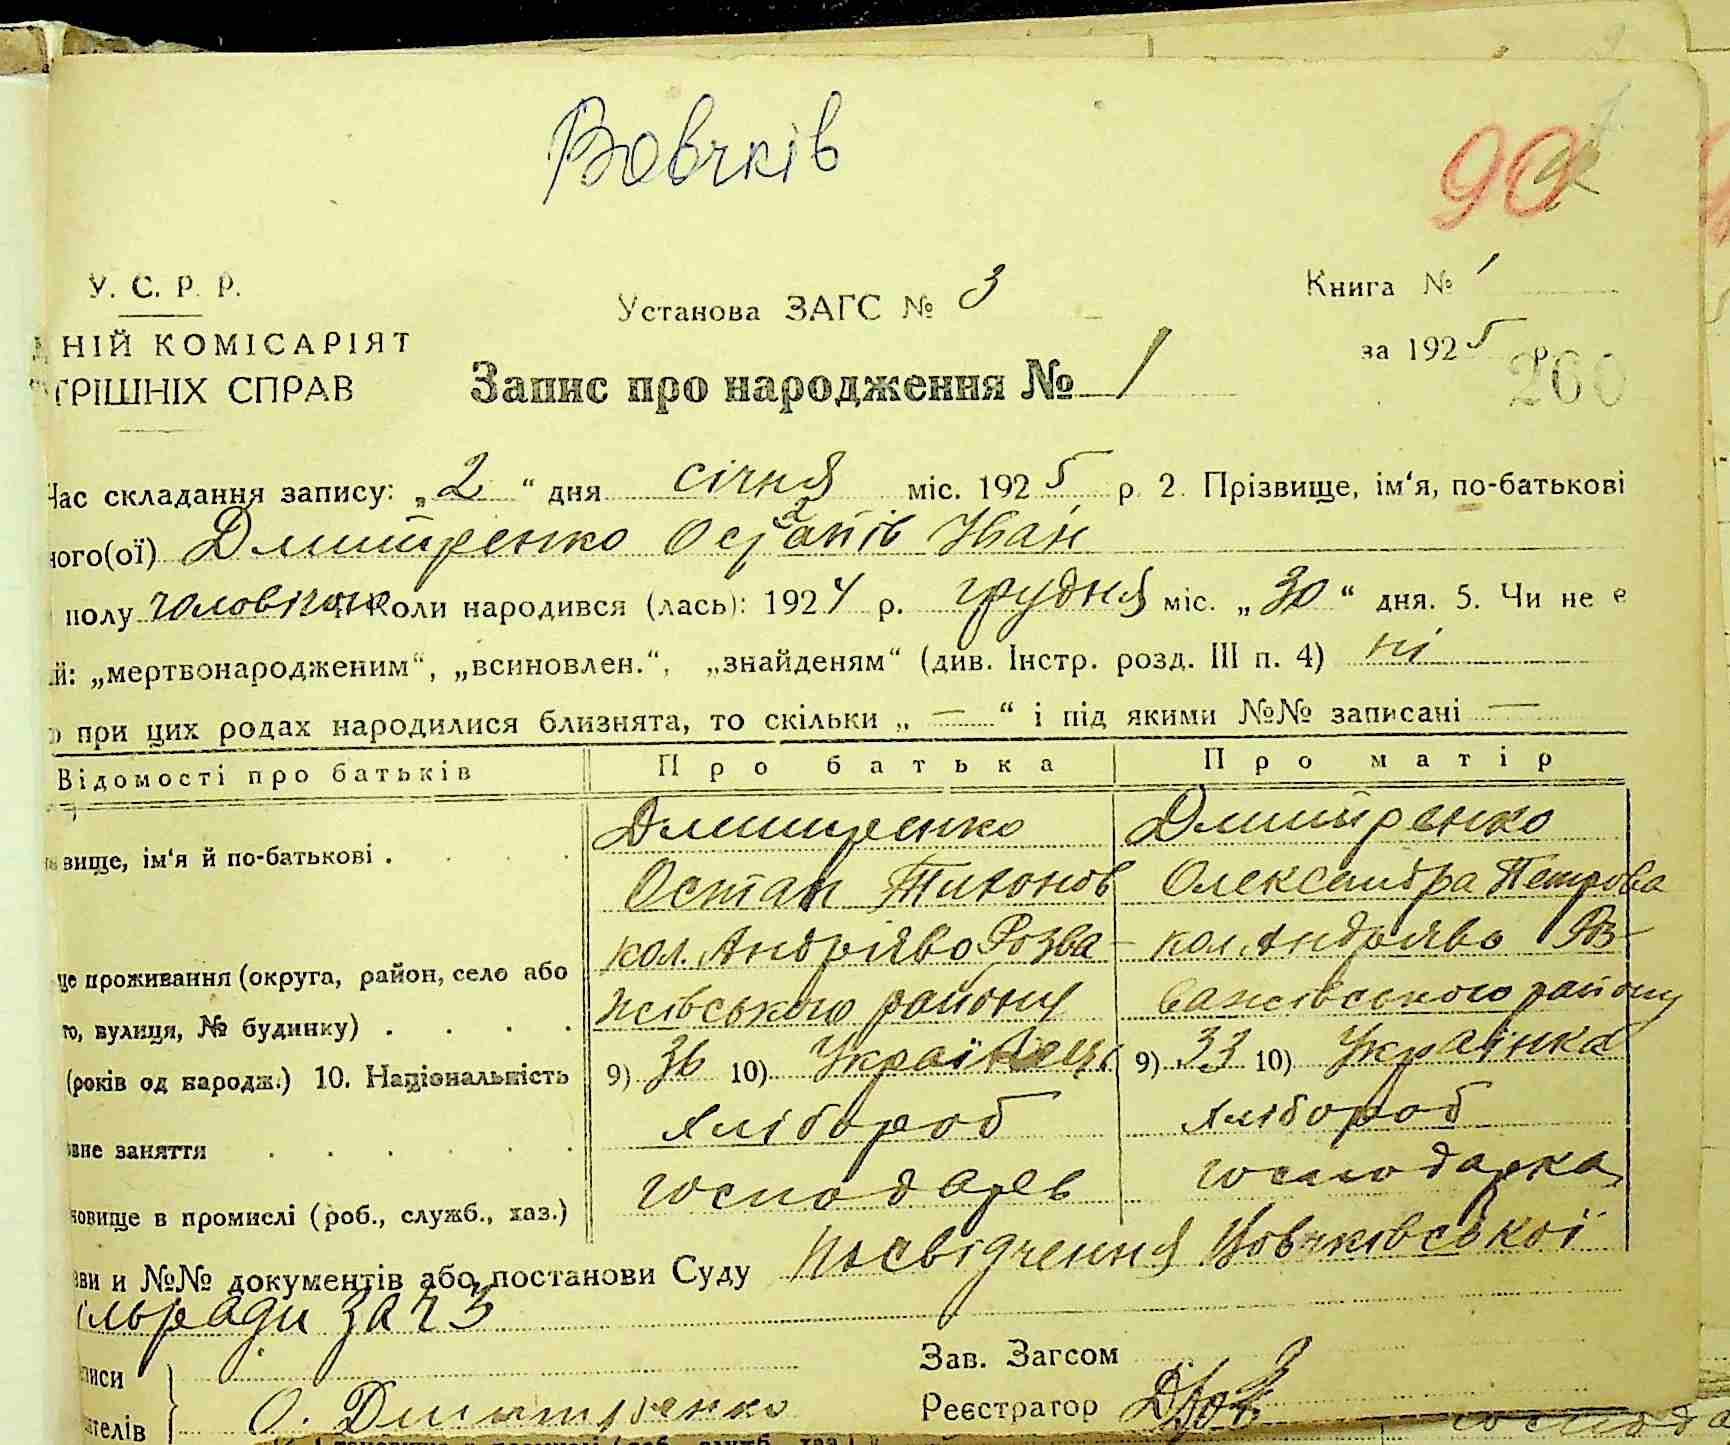 Вовчків
90
У. С. Р. Р.
Установа ЗАГС № 3
Книга № 1
НІЙ КОМІСАРІЯТ
за 1925 р
ТРІШНІХ СПРАВ
Запис про народження № 1
260
Час складання запису: „2“ дня січня міс. 1925 р. 2. Прізвище, ім‘я, по-батькові
ного(ої) Дмитренко Остапів Іван
полу чоловічого Коли народився (лась): 1924 р. грудня міс. „30“ дня. 5. Чи не е
й: „мертвонародженим“, „всиновлен.“, „знайденям“ (див. Інстр. розд. III п. 4) ні
о при цих родах народилися близнята, то скільки „ — “ і під якими №№ записані —
Відомості про батьків Про батька Про матір
Дмитренко Дмитренко
вище, ім‘я й по-батькові . Остап Тихонов Олександра Петрова
кол. Андріяво Розва- кол. Андріяво Роз-
це проживання (округа, район, село або
жівського району важівського району
то, вулиця, № будинку) . . . .
(років од народж.) 10. Національність 9) 36 10) Українець 9) 33 10) Українка
вне заняття . . . . . . хлібороб хлібороб
господарь господарка
новище в промислі (роб., служб., хаз.)
ви и №№ документів або постанови Суду Посвідчення Вовчківської
ільради за ч 3
Зав. Загсом
писи
Реєстратор
ителів О. Дмитренко